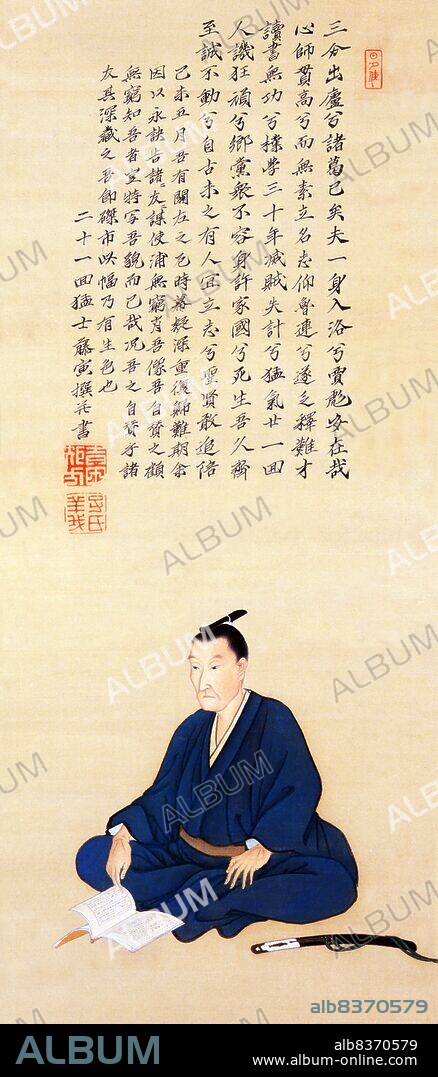 三分出廬兮諸葛已矣夫一身入洛兮賈彪安在哉
心師貫高兮而無素立名志仰魯連兮遂乏釋難才
讀書無功兮樸學三十年滅賊失計兮猛氣廿一回
人譏狂頑兮鄉黨衆不容身許家國兮死生吾久齊
至誠不動兮自古未之有人宜立志兮聖賢敢追陪
己未五月吾有關左之厄時幕疑深重復歸難期余
因以永訣告諸友〻謀使浦無窮肖吾像吾自賛之顧
無窮知吾者豈特写吾貌而已哉況吾之自賛乎諸
友其深藏之吾即磔市此幅乃有生色也
二十一回猛士藤寅撰并書
alb8370579
ALBUM
alb8370579
www.album-online.com